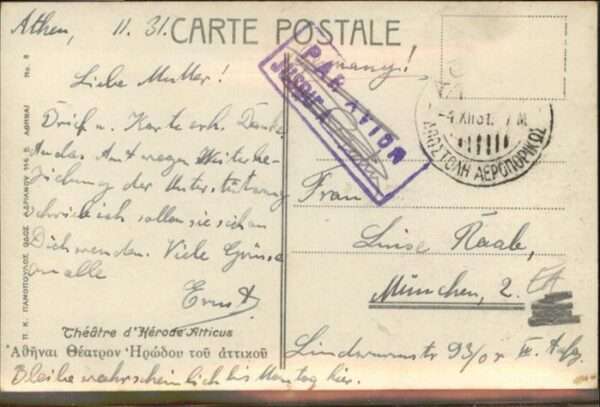 Athen, 11. 31.
CARTE POSTALE
Liebe Mutter!
Brief u. Karte erh. Danke.
An das Amt wegen Weiterbe-
ziehung der Unterstützung
schreibe ich sollen sie sich an
Dich wenden. Viele Grüsse
an alle
Ernst
Théâtre d'Hérode Atticus
Ἀθῆναι Θέατρον Ἡρώδου τοῦ ἀττικοῦ
Bleibe wahrscheinlich bis Montag hier.
Π. Κ. ΠΑΝΟΠΟΥΛΟΣ ΟΔΟΣ ΑΔΡΙΑΝΟΥ ΑΘΗΝΑΙ No. 8
PAR AVION
JUSQU'A
-4.XII 31. 7 M
ΑΠΟΣΤΟΛΗ ΑΕΡΟΠΟΡΙΚΩΣ
Frau
Luise Raabe,
München, 2.
Lindwurmstr 93/0r